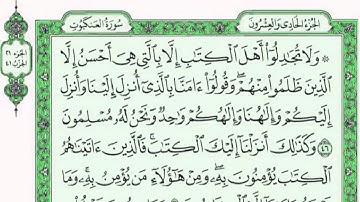 الجزء الحادي والعشرون
سورة العنكبوت
الجزء ٢١
الحزب ٤١
۞ وَلَا تُجَٰدِلُوٓا۟ أَهْلَ ٱلْكِتَٰبِ إِلَّا بِٱلَّتِى هِىَ أَحْسَنُ إِلَّا
ٱلَّذِينَ ظَلَمُوا۟ مِنْهُمْ ۖ وَقُولُوٓا۟ ءَامَنَّا بِٱلَّذِىٓ أُنزِلَ إِلَيْنَا وَأُنزِلَ
إِلَيْكُمْ وَإِلَٰهُنَا وَإِلَٰهُكُمْ وَٰحِدٌ وَنَحْنُ لَهُۥ مُسْلِمُونَ
٤٦ وَكَذَٰلِكَ أَنزَلْنَآ إِلَيْكَ ٱلْكِتَٰبَ ۚ فَٱلَّذِينَ ءَاتَيْنَٰهُمُ
ٱلْكِتَٰبَ يُؤْمِنُونَ بِهِۦ ۖ وَمِنْ هَٰٓؤُلَآءِ مَن يُؤْمِنُ بِهِۦ ۚ وَمَا